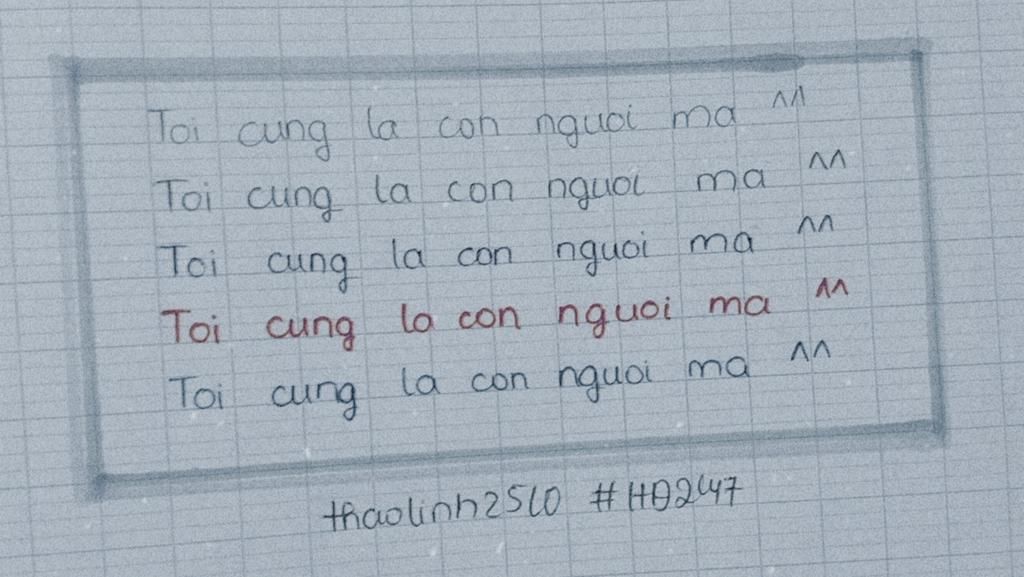 Toi cung la con nguoi ma ^^
Toi cung la con nguoi ma ^^
Toi cung la con nguoi ma ^^
Toi cung la con nguoi ma ^^
Toi cung la con nguoi ma ^^
thaolinh2510 #HĐ247